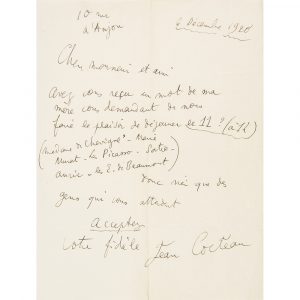 10 rue
d'Anjou
6 Décembre 1920
Cher monsieur et ami
Avez vous reçu un mot de ma
mère vous demandant de nous
faire le plaisir de déjeuner le 11 ? (à 12)
(mesdames de Chevigné - Marie
Murat - les Picasso - Satie -
Auric - les E. de Beaumont)
Donc rien que des
gens qui vous attendent
acceptez
votre fidèle Jean Cocteau